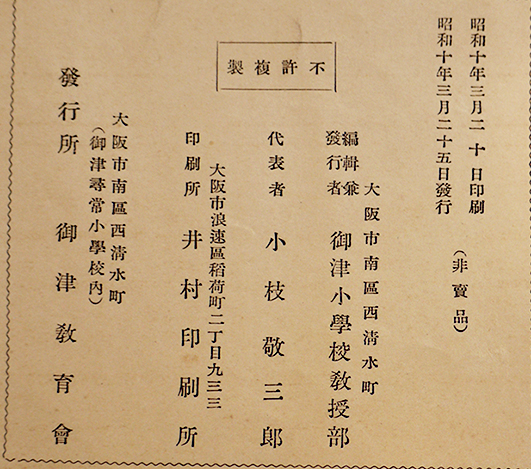 昭和十年三月二十日印刷
昭和十年三月二十五日發行
(非賣品)
不許複製
大阪市南區西清水町
編輯兼
發行者 御津小學校教授部
代表者 小枝敬三郎
大阪市浪速區稻荷町二丁目九三三
印刷所 井村印刷所
大阪市南區西清水町
(御津尋常小學校內)
發行所 御津敎育會